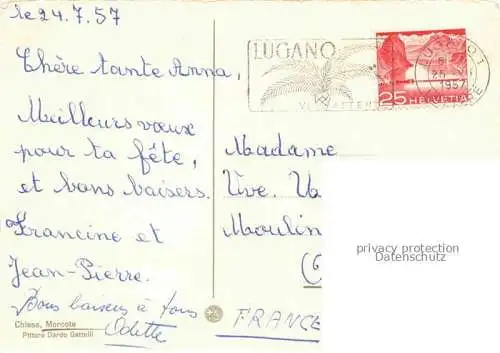 le 24.7.57
Chère tante Anna,
Meilleurs vœux
pour ta fête,
et bons baisers.
Francine et
Jean-Pierre.
Bons baisers à tous
Odette
Chiesa, Morcote
Pittore Dardo Gattelli
LUGANO
VI ATTEN
25 HELVETIA
1957
Madame
Vve. Va
Moulin
privacy protection
Datenschutz
FRANCE